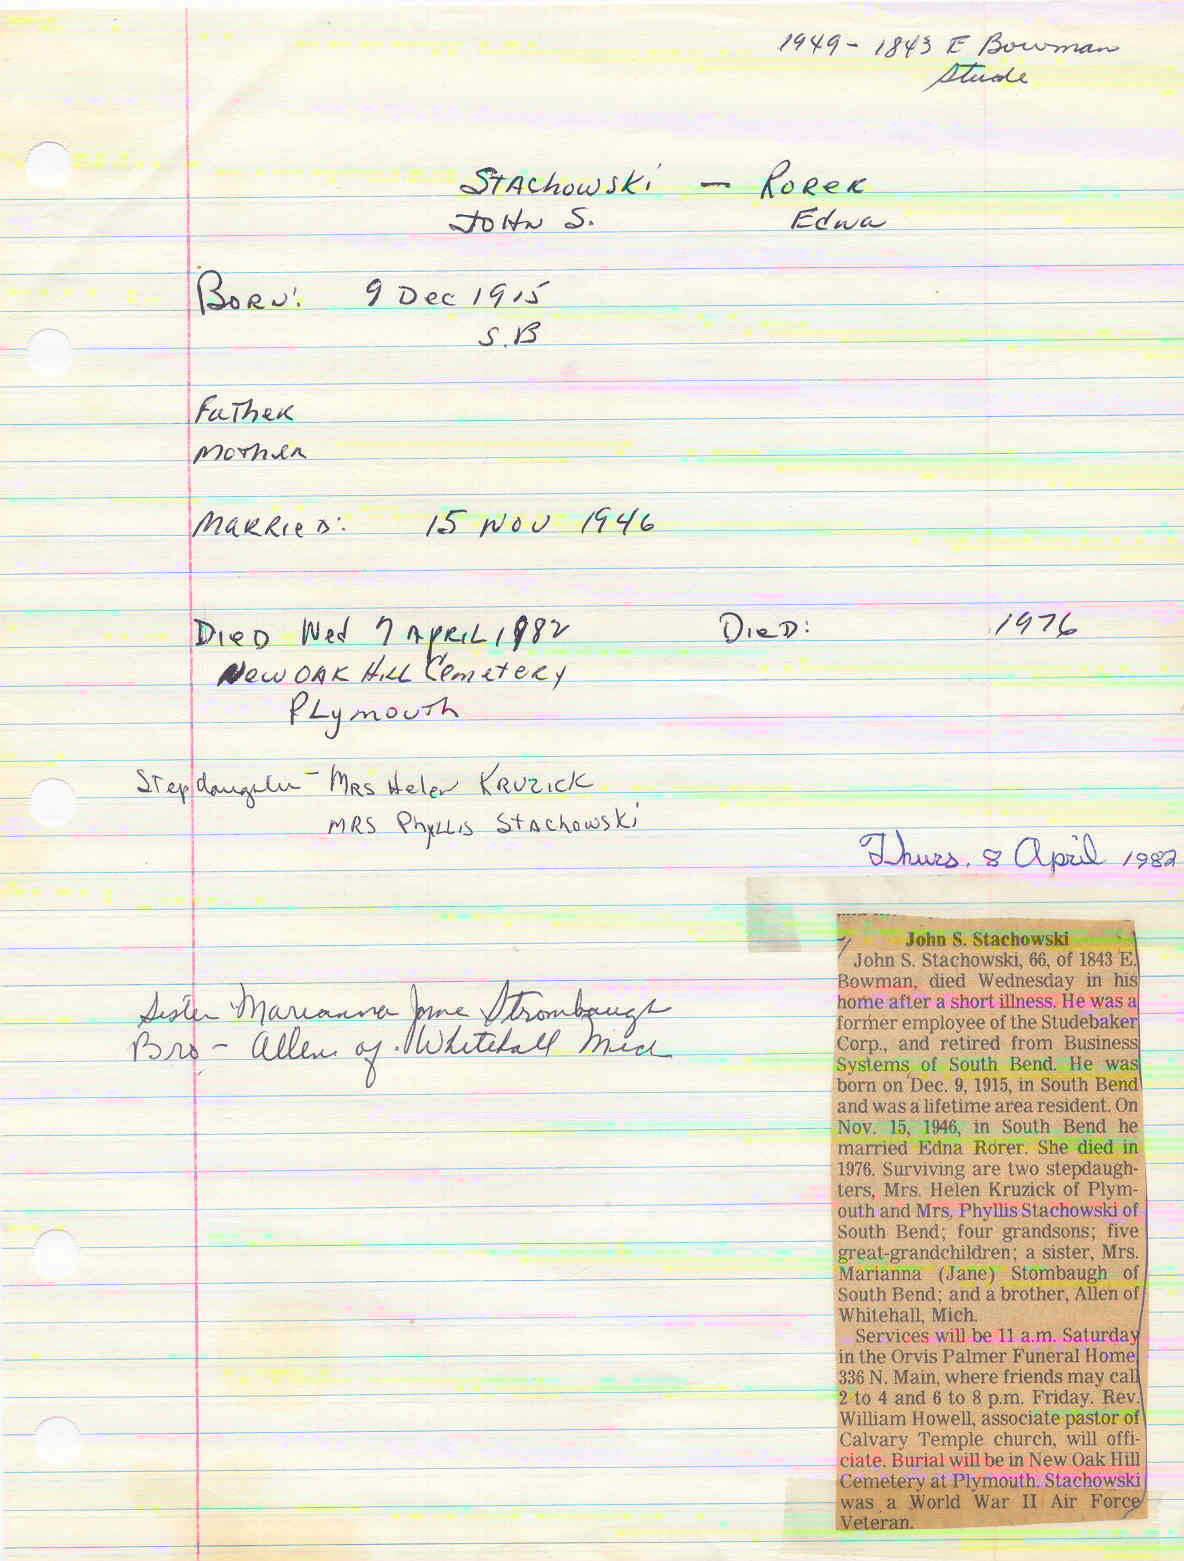 1949 - 1843 E Bowman
Stude
Stachowski — Rorer
John S. Edna
Born: 9 Dec 1915
S.B
Father
Mother
Married: 15 Nov 1946
Died Wed 7 April 1982 Died: 1976
New Oak Hill Cemetery
Plymouth
Stepdaughter - Mrs Helen Kruzick
Mrs Phyllis Stachowski
Thurs. 8 April 1982
Sister Marianna Jane Strombaugh
Bro - Allen of Whitehall Mich
John S. Stachowski
John S. Stachowski, 66, of 1843 E.
Bowman, died Wednesday in his
home after a short illness. He was a
former employee of the Studebaker
Corp., and retired from Business
Systems of South Bend. He was
born on Dec. 9, 1915, in South Bend
and was a lifetime area resident. On
Nov. 15, 1946, in South Bend he
married Edna Rorer. She died in
1976. Surviving are two stepdaugh-
ters, Mrs. Helen Kruzick of Plym-
outh and Mrs. Phyllis Stachowski of
South Bend; four grandsons; five
great-grandchildren; a sister, Mrs.
Marianna (Jane) Stombaugh of
South Bend; and a brother, Allen of
Whitehall, Mich.
Services will be 11 a.m. Saturday
in the Orvis Palmer Funeral Home,
336 N. Main, where friends may call
2 to 4 and 6 to 8 p.m. Friday. Rev.
William Howell, associate pastor of
Calvary Temple church, will offi-
ciate. Burial will be in New Oak Hill
Cemetery at Plymouth. Stachowski
was a World War II Air Force
Veteran.